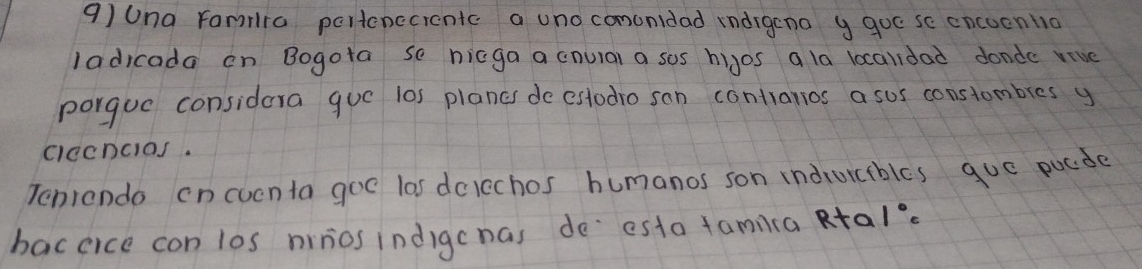 9) Una Familia perteneciente a una comonidad indigena y que se encuentra
radicada en Bogota se niega a enviar a sus hijos a la localidad donde vive
porque considera que los planes de estodio son contrarios a sus constombres y
creencias.
Teniendo en cuenta que los derechos humanos son indivicibles que puede
hacerce con los niños indigenas de esta familia Rtal°c